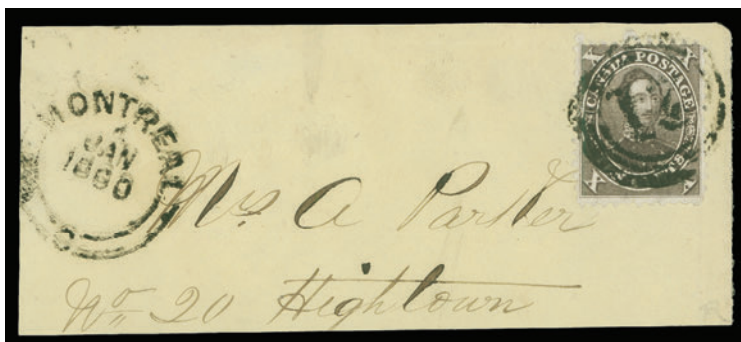 MONTREAL
JAN
1860
X CANADA POSTAGE X
X X
Mrs A Parker
No 20 Hightown